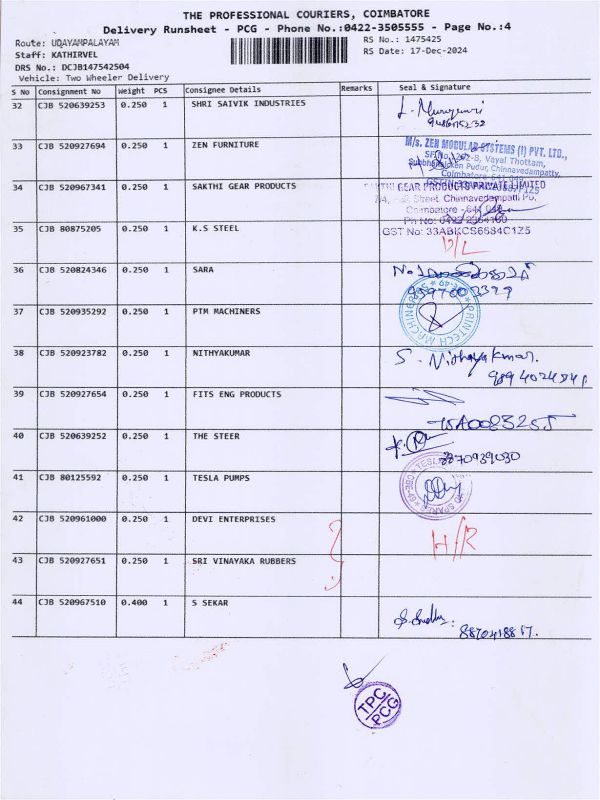 THE PROFESSIONAL COURIERS, COIMBATORE
Delivery Runsheet - PCG - Phone No.:0422-3505555 - Page No.:4
Route: UDAYAMPALAYAM
RS No.: 1475425
Staff: KATHIRVEL
RS Date: 17-Dec-2024
DRS No.: DCJB147542504
Vehicle: Two Wheeler Delivery
S No Consignment No Weight PCS Consignee Details Remarks Seal & Signature
32 CJB 520639253 0.250 1 SHRI SAIVIK INDUSTRIES
33 CJB 520927694 0.250 1 ZEN FURNITURE
M/s. ZEN MODULAR SYSTEMS (I) PVT. LTD.,
Vayal Thottam,
Pudur, Chinnavedampatty,
34 CJB 520967341 0.250 1 SAKTHI GEAR PRODUCTS
GEAR PRODUCTS PRIVATE LIMITED
Street, Chinnavedampatti Po,
Coimbatore - 641 049
35 CJB 80875205 0.250 1 K.S STEEL
GST No: 33ABKCS6684C1Z5
D/L
36 CJB 520824346 0.250 1 SARA
37 CJB 520935292 0.250 1 PTM MACHINERS
PRINTECH MACHINERS
38 CJB 520923782 0.250 1 NITHYAKUMAR
S. Nithyakumar.
39 CJB 520927654 0.250 1 FITS ENG PRODUCTS
40 CJB 520639252 0.250 1 THE STEER
8870939030
41 CJB 80125592 0.250 1 TESLA PUMPS
42 CJB 520961000 0.250 1 DEVI ENTERPRISES
H/R
43 CJB 520927651 0.250 1 SRI VINAYAKA RUBBERS
44 CJB 520967510 0.400 1 S SEKAR
TPC
PCG